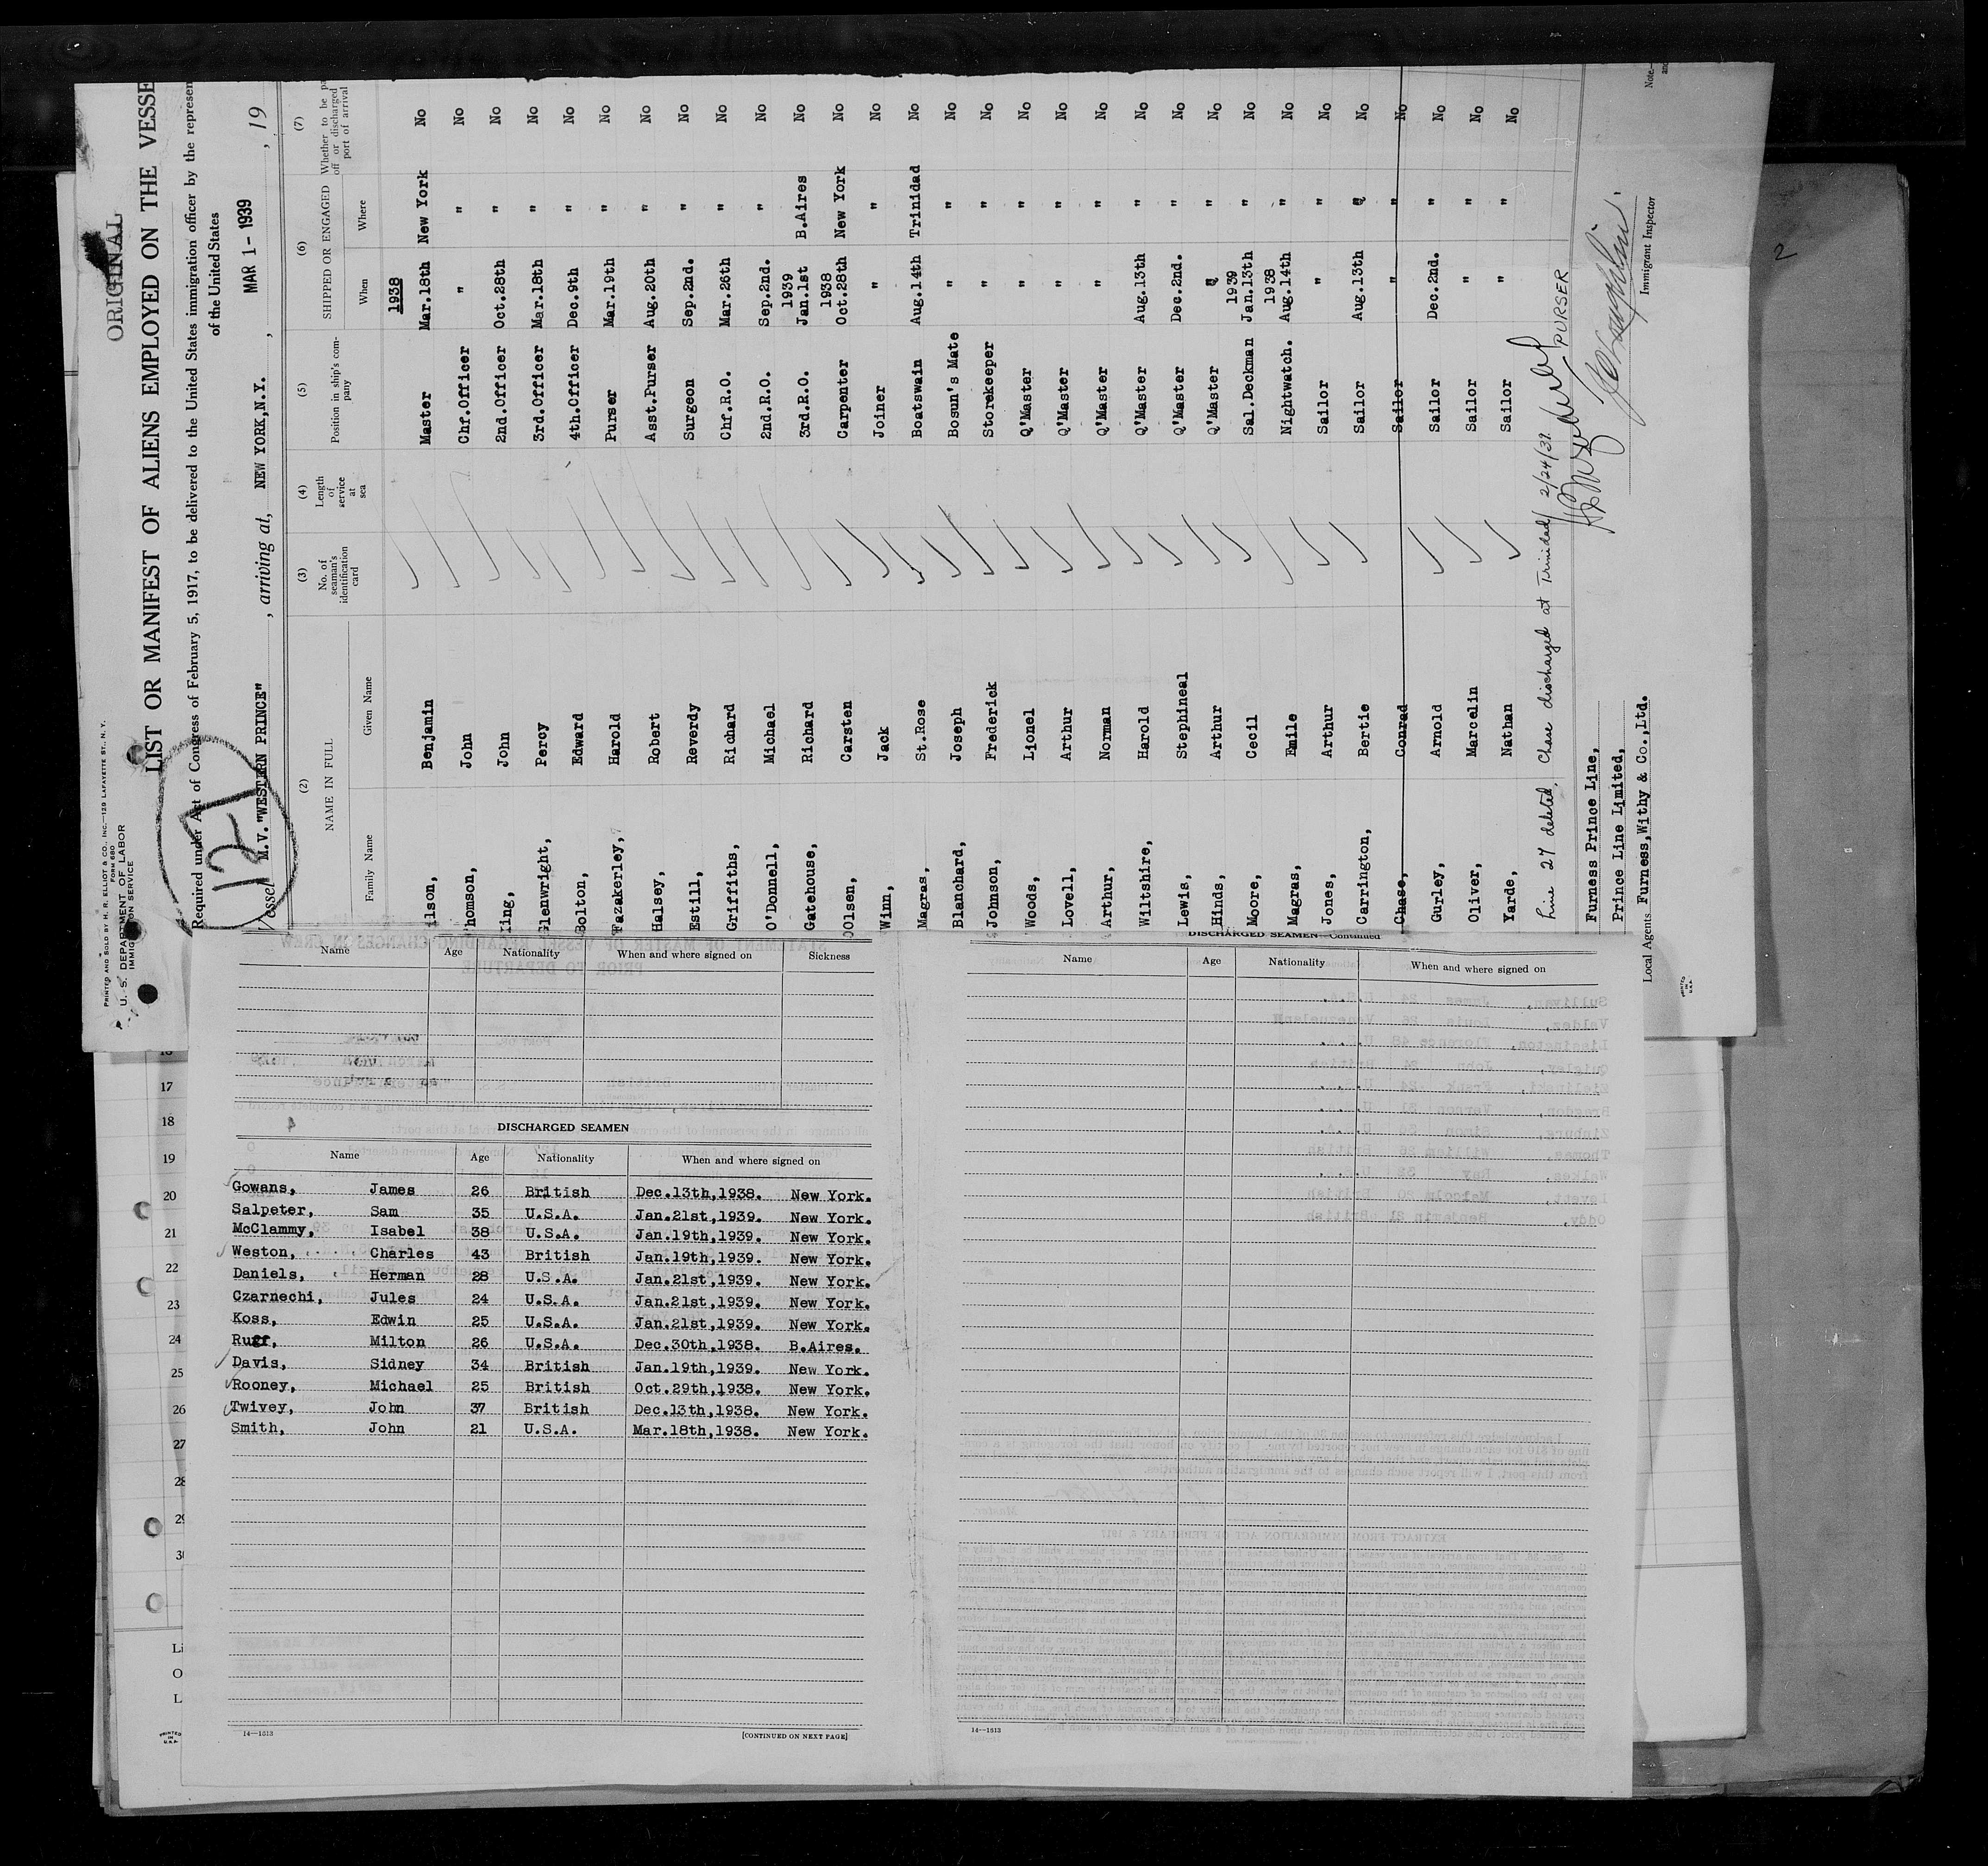 ORIGINAL
PRINTED AND SOLD BY H. R. ELLIOT & CO., INC.—129 LAFAYETTE ST., N. Y.
FORM 680
U. S. DEPARTMENT OF LABOR
IMMIGRATION SERVICE
LIST OR MANIFEST OF ALIENS EMPLOYED ON THE VESSE
Required under Act of Congress of February 5, 1917, to be delivered to the United States immigration officer by the represen
of the United States
Vessel M.V."WESTERN PRINCE", arriving at, NEW YORK,N.Y., MAR 1 - 1939, 19
(2) (3) (4) (5) (6) (7)
NAME IN FULL No. of seaman's identification card Length of service at sea Position in ship's company SHIPPED OR ENGAGED Whether to be pa off or discharged port of arrival
Family Name Given Name When Where
1938
ilson, Benjamin Master Mar.18th New York No
homson, John Chf.Officer " " No
ing, John 2nd.Officer Oct.28th " No
Glenwright, Percy 3rd.Officer Mar.18th " No
Bolton, Edward 4th.Officer Dec.9th " No
Fazakerley, Harold Purser Mar.19th " No
Halsey, Robert Asst.Purser Aug.20th " No
Estill, Reverdy Surgeon Sep.2nd. " No
Griffiths, Richard Chf.R.O. Mar.26th " No
O'Donnell, Michael 2nd.R.O. Sep.2nd. " No
1939
Gatehouse, Richard 3rd.R.O. Jan.1st B.Aires No
1938
Olsen, Carsten Carpenter Oct.28th New York No
Winn, Jack Joiner " " No
Magras, St.Rose Boatswain Aug.14th Trinidad No
Blanchard, Joseph Bosun's Mate " " No
Johnson, Frederick Storekeeper " " No
Woods, Lionel Q'Master " " No
Lovell, Arthur Q'Master " " No
Arthur, Norman Q'Master " " No
Wiltshire, Harold Q'Master Aug.13th " No
Lewis, Stephineal Q'Master Dec.2nd. " No
Hinds, Arthur Q'Master " " No
1939
Moore, Cecil Sal.Deckman Jan.13th " No
1938
Magras, Emile Nightwatch. Aug.14th " No
Jones, Arthur Sailor " " No
Carrington, Bertie Sailor Aug.13th " No
Chase, Conrad Sailor " " No
Gurley, Arnold Sailor Dec.2nd. " No
Oliver, Marcelin Sailor " " No
Yarde, Nathan Sailor " " No
Line 27 deleted, Chase discharged at Trinidad 2/24/39
PURSER
Furness Prince Line,
Prince Line Limited,
Local Agents Furness,Withy & Co.,Ltd.
Immigrant Inspector
Note.—
Name Age Nationality When and where signed on Sickness
DISCHARGED SEAMEN
Name Age Nationality When and where signed on
Gowans, James 26 British Dec.13th,1938. New York.
Salpeter, Sam 35 U.S.A. Jan.21st,1939. New York.
McClammy, Isabel 38 U.S.A. Jan.19th,1939. New York.
Weston, Charles 43 British Jan.19th,1939. New York.
Daniels, Herman 28 U.S.A. Jan.21st,1939. New York.
Czarnechi, Jules 24 U.S.A. Jan.21st,1939. New York.
Koss, Edwin 25 U.S.A. Jan.21st,1939. New York.
Ruff, Milton 26 U.S.A. Dec.30th,1938. B.Aires.
Davis, Sidney 34 British Jan.19th,1939. New York.
Rooney, Michael 25 British Oct.29th,1938. New York.
Twivey, John 37 British Dec.13th,1938. New York.
Smith, John 21 U.S.A. Mar.18th,1938. New York.
14—1613 [CONTINUED ON NEXT PAGE]
DISCHARGED SEAMEN—Continued
Name Age Nationality When and where signed on
14—1613
17
18
19
20
21
22
23
24
25
26
27
28
29
2